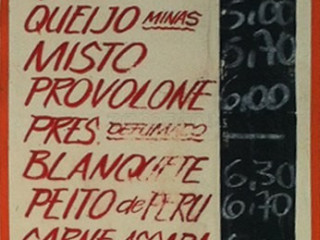 QUEIJO MINAS 5,00
MISTO 5,70
PROVOLONE 6,00
PRES. DEFUMADO
BLANQUETE 6,30
PEITO de PERU 6,70
CARNE ASSADA